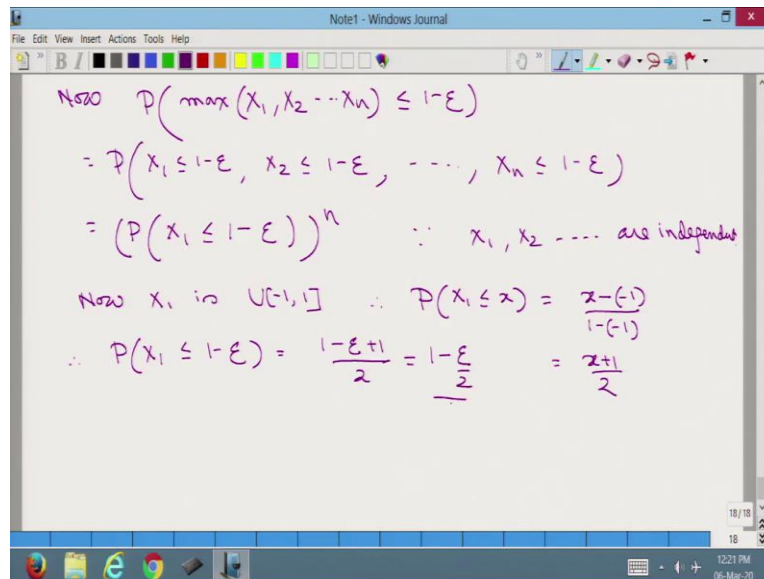 Note1 - Windows Journal
File Edit View Insert Actions Tools Help
B I
Now P(max(X₁, X₂ ... Xₙ) ≤ 1-ε)
= P(X₁ ≤ 1-ε, X₂ ≤ 1-ε, ----, Xₙ ≤ 1-ε)
= (P(X₁ ≤ 1-ε))ⁿ ∵ X₁, X₂ ---- are independent
Now X₁ is U[-1,1] ∴ P(X₁ ≤ x) = (x-(-1))/(1-(-1))
∴ P(X₁ ≤ 1-ε) = (1-ε+1)/2 = 1-ε/2 = (x+1)/2
18/18
18
12:21 PM
06-Mar-20